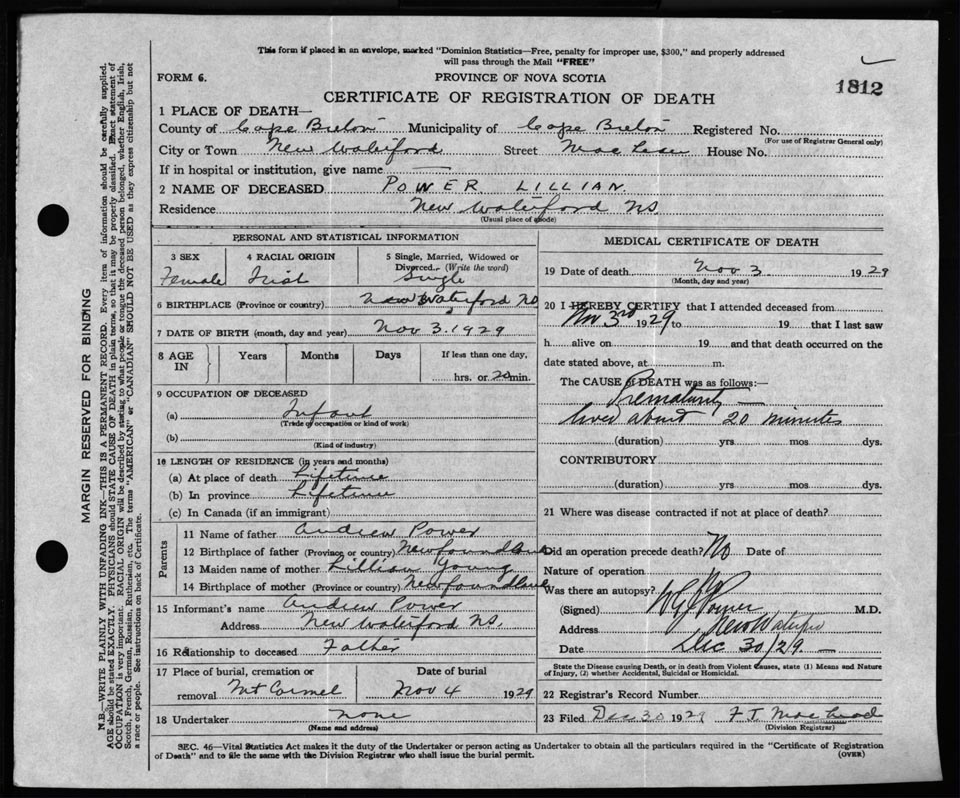 This form if placed in an envelope, marked "Dominion Statistics—Free, penalty for improper use, $300," and properly addressed
will pass through the Mail "FREE"
FORM 6.
PROVINCE OF NOVA SCOTIA
1812
CERTIFICATE OF REGISTRATION OF DEATH
1 PLACE OF DEATH—
County of Cape Breton Municipality of Cape Breton Registered No.
(For use of Registrar General only)
City or Town New Waterford Street House No.
If in hospital or institution, give name —
2 NAME OF DECEASED POWER LILLIAN.
Residence New Waterford NS
(Usual place of abode)
PERSONAL AND STATISTICAL INFORMATION
3 SEX 4 RACIAL ORIGIN 5 Single, Married, Widowed or
Divorced. (Write the word)
Female Irish Single
6 BIRTHPLACE (Province or country) New Waterford NS
7 DATE OF BIRTH (month, day and year) Nov 3. 1929
8 AGE IN Years Months Days If less than one day,
hrs. or 20 min.
9 OCCUPATION OF DECEASED
(a) Infant
(Trade or occupation or kind of work)
(b)
(Kind of industry)
10 LENGTH OF RESIDENCE (in years and months)
(a) At place of death Lifetime
(b) In province Lifetime
(c) In Canada (if an immigrant)
Parents
11 Name of father Andrew Power
12 Birthplace of father (Province or country) Newfoundland
13 Maiden name of mother Lillian Young
14 Birthplace of mother (Province or country) Newfoundland
15 Informant's name Andrew Power
Address New Waterford NS.
16 Relationship to deceased Father
17 Place of burial, cremation or Date of burial
removal Mt Carmel Nov 4 1929
18 Undertaker none
(Name and address)
MEDICAL CERTIFICATE OF DEATH
19 Date of death Nov 3 1929
(Month, day and year)
20 I HEREBY CERTIFY that I attended deceased from
Nov 3rd 1929 to 19 that I last saw
h alive on 19 and that death occurred on the
date stated above, at m.
The CAUSE of DEATH was as follows:—
Prematurity —
lived about 20 minutes
(duration) yrs. mos. dys.
CONTRIBUTORY
(duration) yrs. mos. dys.
21 Where was disease contracted if not at place of death?
Did an operation precede death? No Date of
Nature of operation
Was there an autopsy? No
(Signed) M.D.
Address New Waterford
Date Dec 30/29. —
State the Disease causing Death, or in death from Violent Causes, state (1) Means and Nature
of Injury, (2) whether Accidental, Suicidal or Homicidal.
22 Registrar's Record Number
23 Filed Dec 30 1929
(Division Registrar)
SEC. 46—Vital Statistics Act makes it the duty of the Undertaker or person acting as Undertaker to obtain all the particulars required in the "Certificate of Registration
of Death" and to file the same with the Division Registrar who shall issue the burial permit.
(OVER)
MARGIN RESERVED FOR BINDING
N.B.—WRITE PLAINLY WITH UNFADING INK—THIS IS A PERMANENT RECORD. Every item of information should be carefully supplied.
AGE should be stated EXACTLY. PHYSICIANS should STATE CAUSE OF DEATH in plain terms, so that it may be properly classified. Exact statement of
OCCUPATION is very important. RACIAL ORIGIN will be described by stating to what people or tongue the deceased person belonged, whether English, Irish,
Scotch, French, German, Russian, Ruthenian, etc. The terms "AMERICAN" or "CANADIAN" SHOULD NOT BE USED as they express citizenship but not
a race or people. See instructions on back of Certificate.